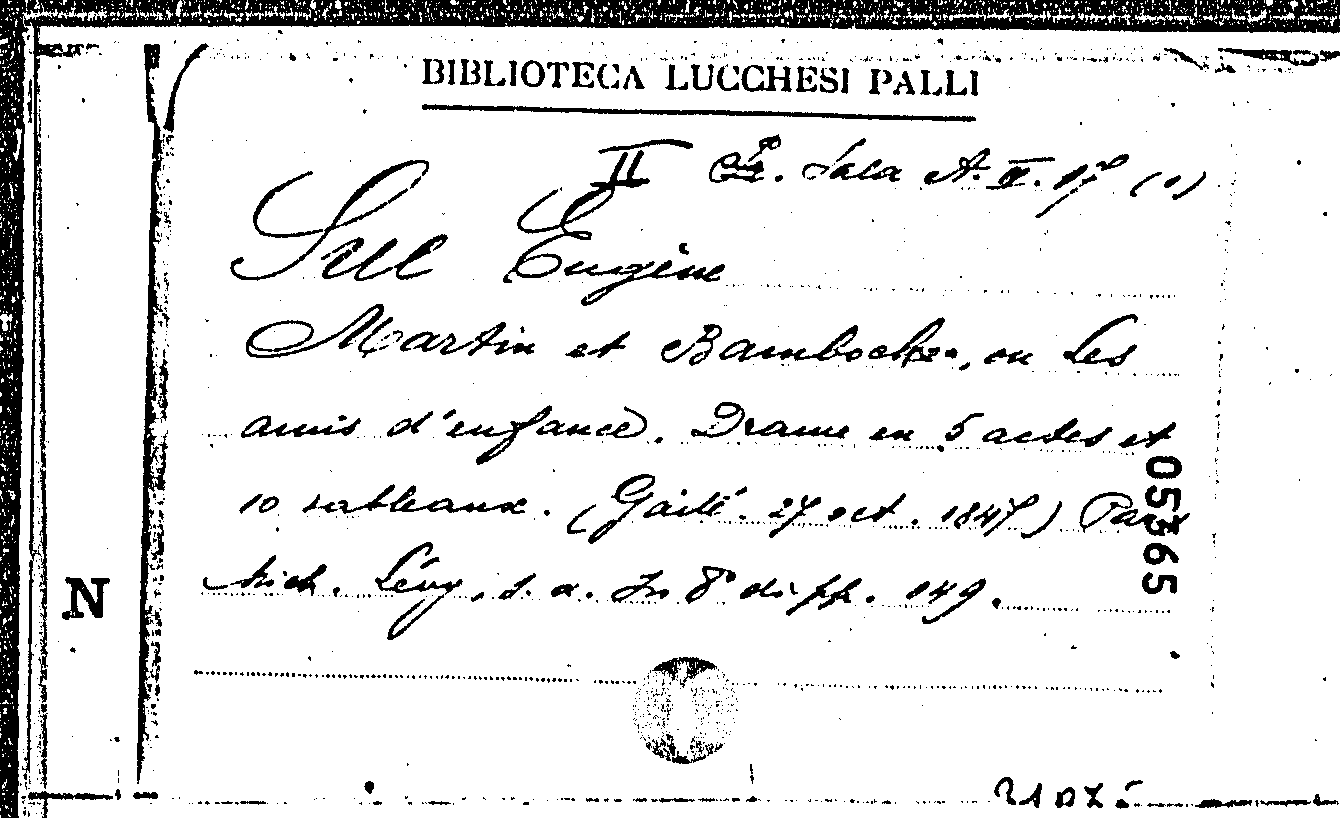 BIBLIOTECA LUCCHESI PALLI
II Sala A. II. 17 (1)
Sue Eugène
Martin et Bamboche, ou Les
amis d'enfance. Drame en 5 actes et
10 tableaux. (Gaité. 27 oct. 1847) Paris
Mich. Lévy, s. a. In 8° di pp. 149.
05365
N